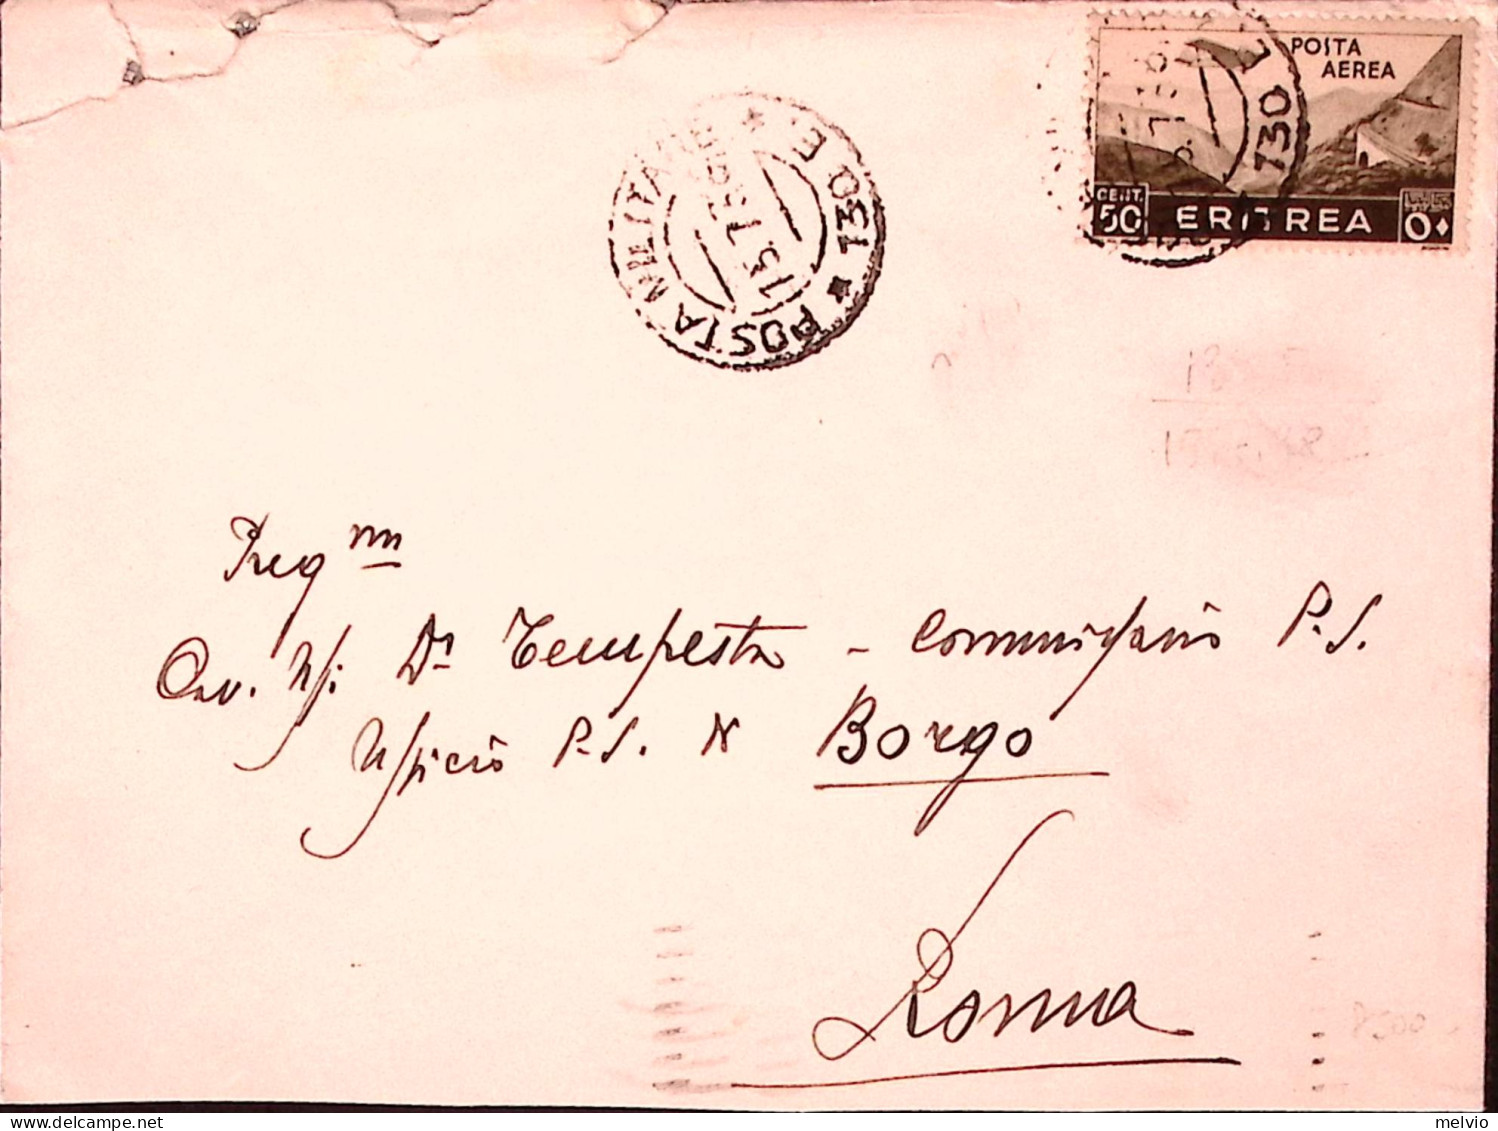 POSTA
AEREA
CENT.
50
ERITREA
730 E.
POSTA MILITARE * 130 E. *
13.7.36
Preg mo
Cav. Uff. Dr Tempesta - Commissario P.S.
Ufficio P.S. Borgo
Roma
P500
melvio